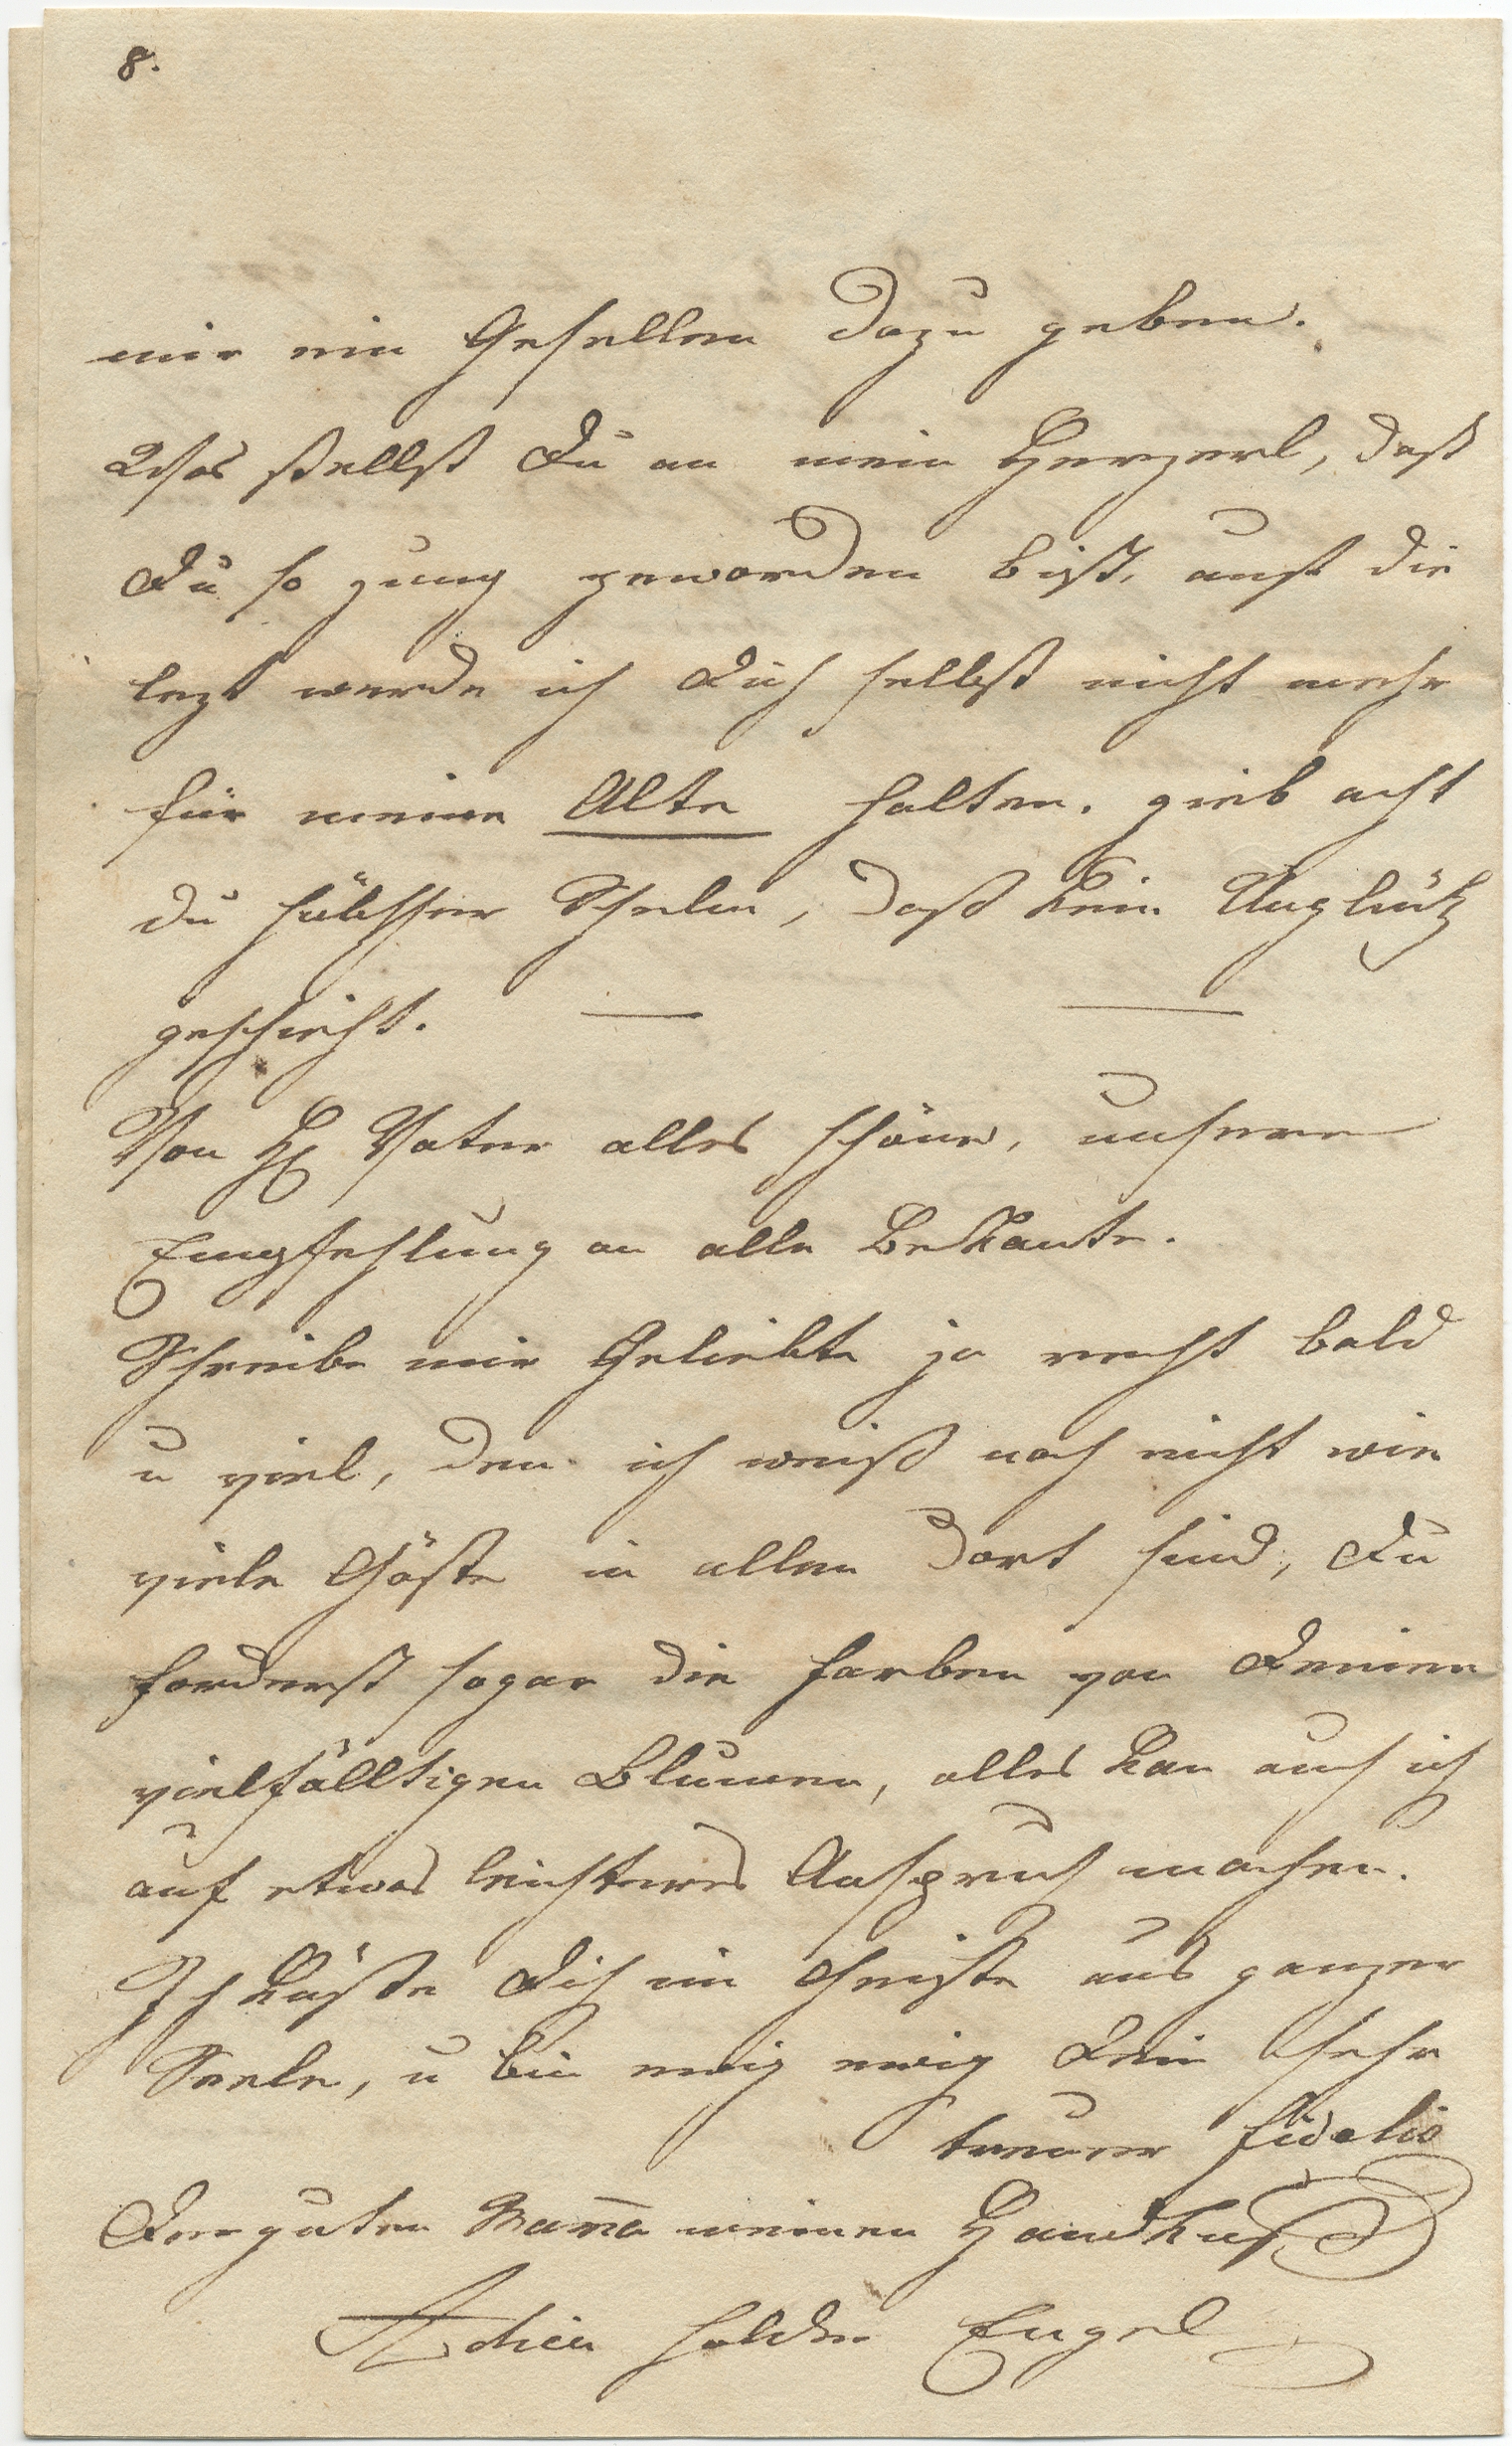 8.
mir ein Gesellen dazu geben.
Was stellst Du an mein Herzerl, daß
Du so jung geworden bist, auf die
lezt werde ich Dich selbst nicht mehr
für meine Alte halten. gieb acht
du hübscher Schelm, daß kein Unglük
geschieht. — —
Von H Vater alles schöne, unsere
Empfehlung an alle Bekante.
Schreibe mir Geliebte ja recht bald
u viel, den ich weiß noch nicht wie
viele Gäste in allen dort sind, Du
forderst sogar die Farben von Deinen
vielfälltigen Blumen, alles kan auch ich
auf etwas leichteres Anspruch machen.
Ich küße Dich im Geiste aus ganzer
Seele, u bin ewig ewig Dein sehr
treuer Fidelio
Der guten Mama meinen Handkuß
Adieu holder Engel